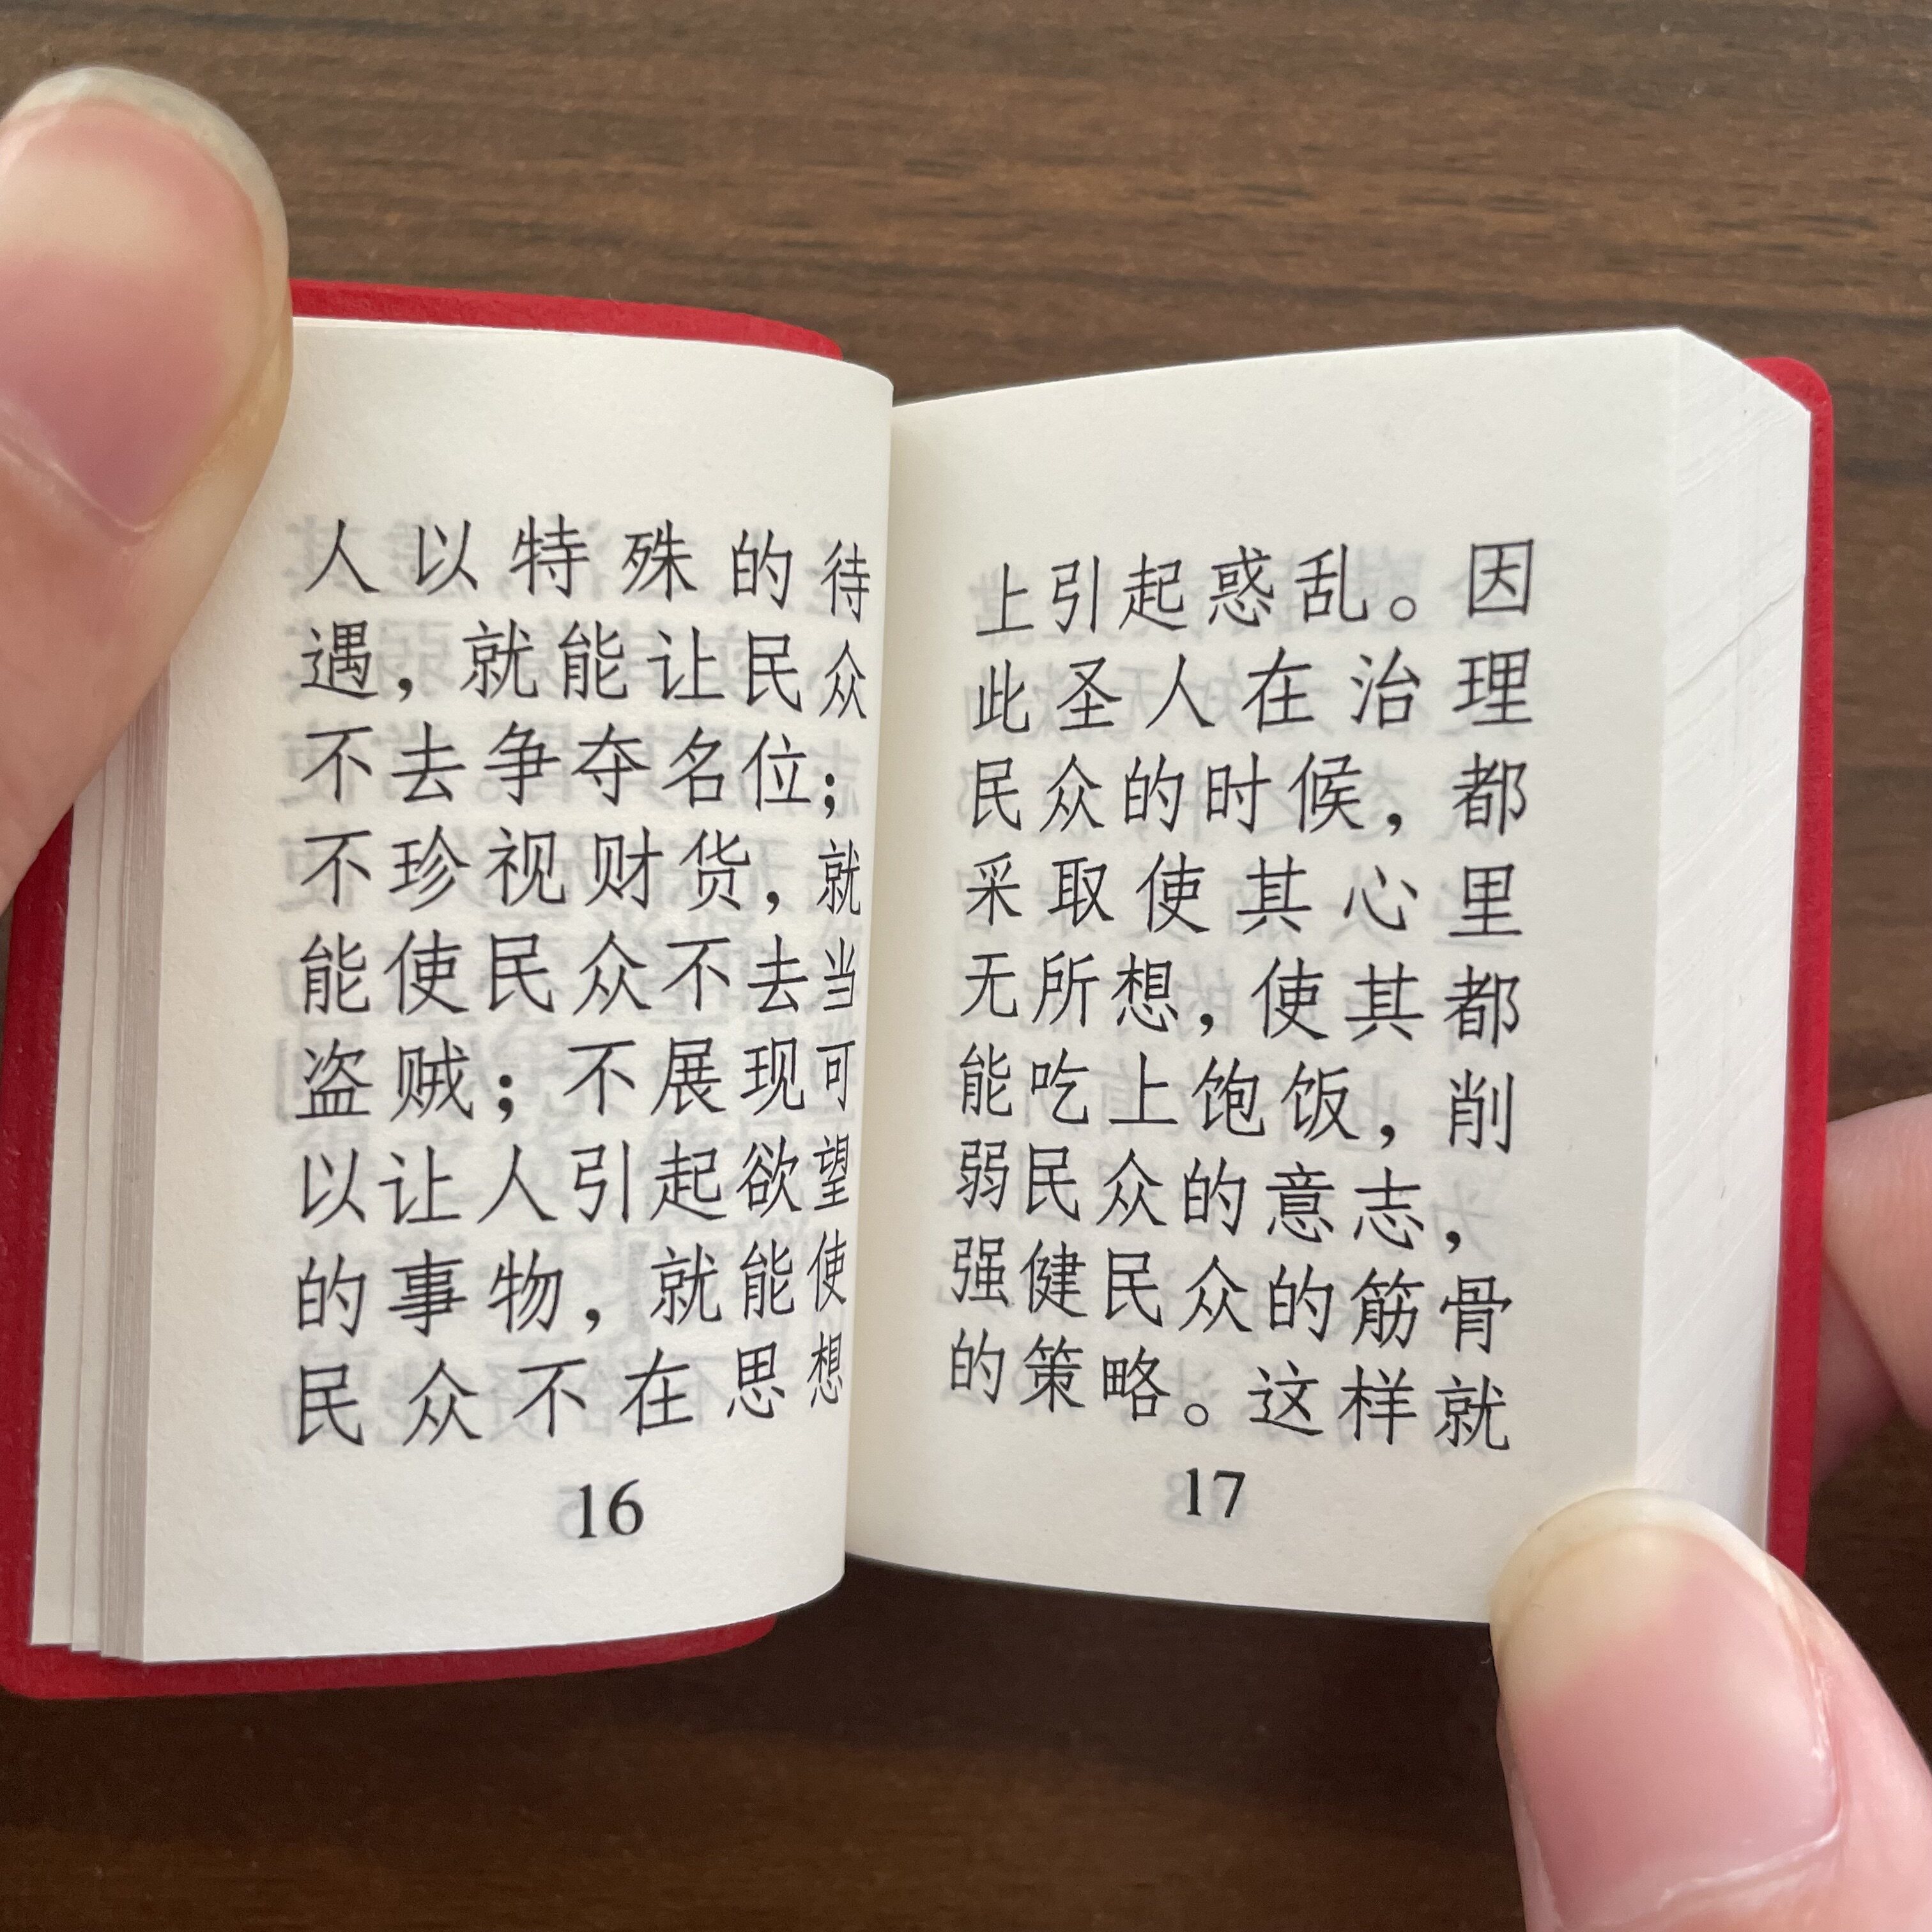 人以特殊的待
遇，就能让民众
不去争夺名位；
不珍视财货，就
能使民众不去当
盗贼；不展现可
以让人引起欲望
的事物，就能使
民众不在思想
16
上引起惑乱。因
此圣人在治理
民众的时候，都
采取使其心里
无所想，使其都
能吃上饱饭，削
弱民众的意志，
强健民众的筋骨
的策略。这样就
17